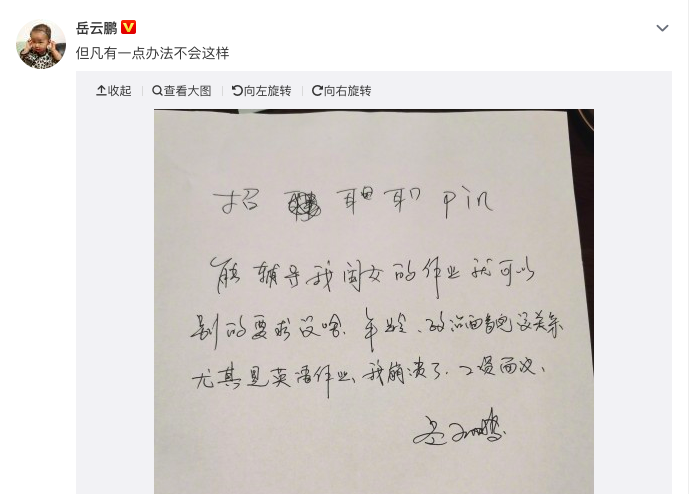 岳云鹏
但凡有一点办法不会这样
收起 查看大图 向左旋转 向右旋转
招 pin
能辅导我闺女的作业就可以
别的要求没啥.年龄、政治面貌没关系
尤其是英语作业、我崩溃了.工资面议.
岳云鹏